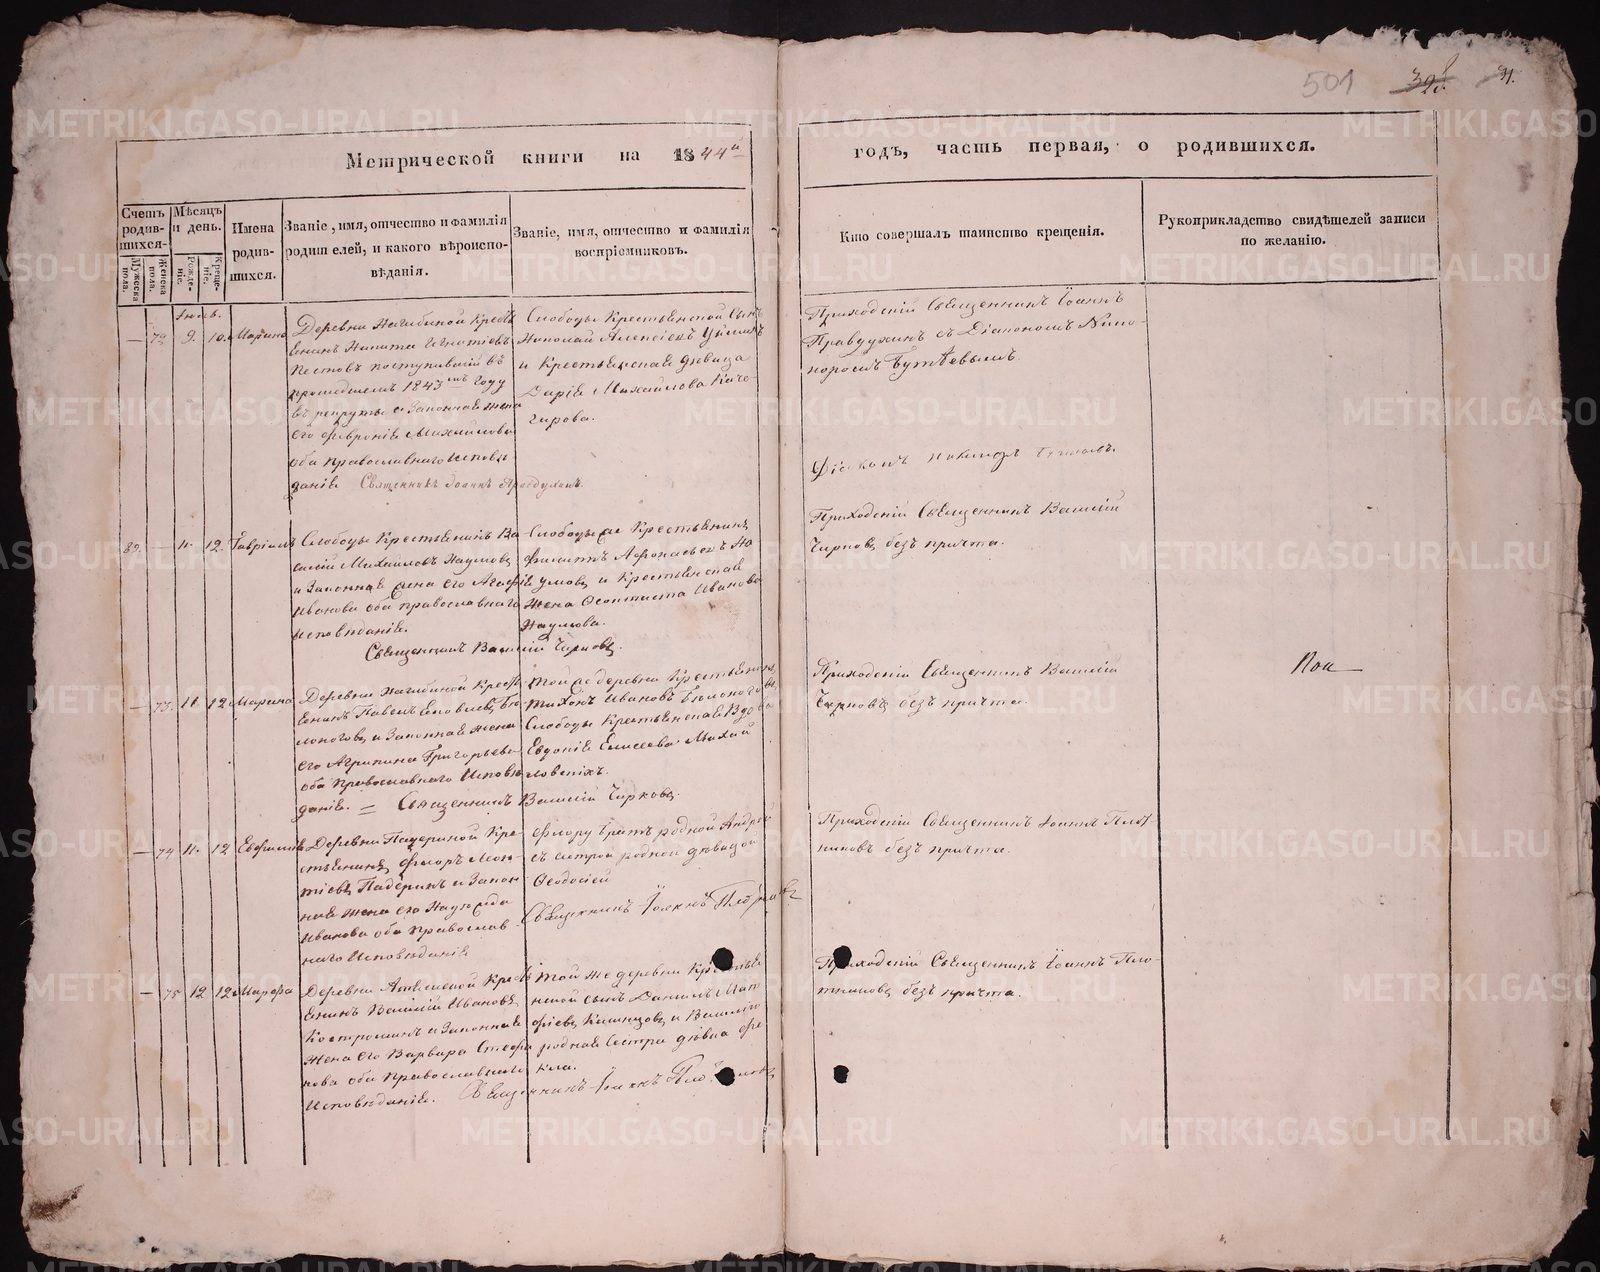 501
31.
Метрической книги на 1844й
годъ, часть первая, о родившихся.
Счетъ родив-
шихся.
Мѣсяцъ
и день.
Имена
родив-
шихся.
Званіе, имя, отчество и фамилія
родителей, и какого вѣроиспо-
вѣданія.
Званіе, имя, отчество и фамилія
воспріемниковъ.
Кто совершалъ таинство крещенія.
Рукоприкладство свидѣтелей записи
по желанію.
Мужеска
пола.
Женска
пола.
Рожде-
ніе.
Креще-
ніе.
Іюль.
— 72 9. 10. Марина
Деревни Нагибиной Кресть
янинъ Никита Игнатіевъ
Пестовъ поступившій въ
прошедшемъ 1843мъ году
въ рекруты и Законная жена
его Февронія Михайлова
оба православнаго Исповѣ
данія Священникъ Іоаннъ Правдухинъ.
Слободы Крестьянской Сынъ
Николай Алексіевъ
и Крестьянская дѣвица
Дарія Михайлова Коче-
гарова.
Приходскій Священникъ Іоаннъ
Правдухинъ съ Діакономъ Ники-
норомъ
Діаконъ
82. — 11. 12. Гавріилъ
Слободы Крестьянинъ Ва
силій Михайловъ Наумовъ
и Законная жена его Агафія
Иванова оба православнаго
Исповѣданія.
Священникъ Василій Чирковъ.
Слободы же Крестьянинъ
Филиппъ Афонасьевъ На
умовъ и Крестьянская
жена Феоктиста Иванова
Наумова.
Приходскій Священникъ Василій
Чирковъ безъ причта.
— 73. 11. 12 Марина
Деревни Нагибиной Кресть
янинъ Павелъ Іаковлевъ Бѣ
лоноговъ и Законная жена
его Агрипина Григорьева
оба Православнаго Исповѣ
данія. — Священникъ Василій Чирковъ.
Той же деревни Крестьянинъ
Тихонъ Ивановъ Бѣлоноговъ
Слободы Крестьянская Вдова
Евдокія Елисеева Михай
ловскихъ.
Приходскій Священникъ Василій
Чирковъ безъ причта.
— 74 11. 12 Евфимія
Деревни Пащериной Кре-
стьянинъ Флоръ Леон-
тіевъ Падеринъ и Закон-
ная жена его Надѣжда
Иванова оба Православ-
наго Исповѣданія
Флору братъ родной Андрей
съ сестрой родной дѣвицой
Феодосіей
Священникъ Іоаннъ Плотниковъ
Приходскій Священникъ Іоаннъ Плот
никовъ безъ причта.
— 75 12 12 Марфа
Деревни Кресть
янинъ Василій Ивановъ
Костроминъ и Законная
жена его Варвара Стефа
нова оба Православнаго
Исповѣданія.
Той же деревни Крестья
нской сынъ Даніилъ Мат
фіевъ и Василію
родная Сестра дѣвка Фе
кла.
Священникъ Іоаннъ Плотниковъ
Приходскій Священникъ Іоаннъ Пло-
тниковъ безъ причта.